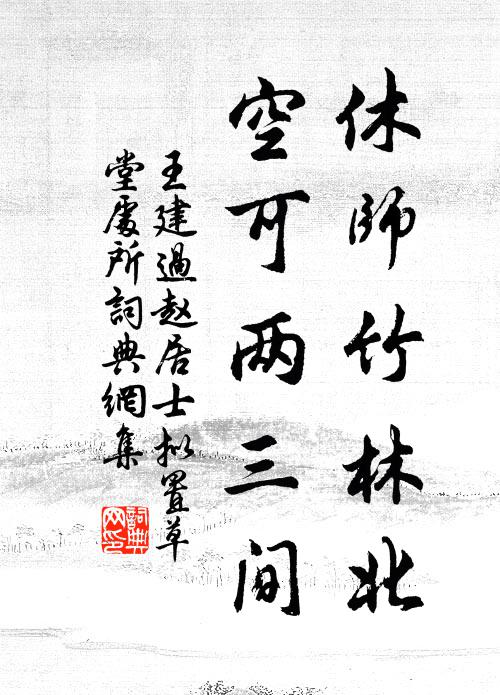 休師竹林北
空可两三间
王建過赵居士拟置草
堂處所詞典網集
詞典网印